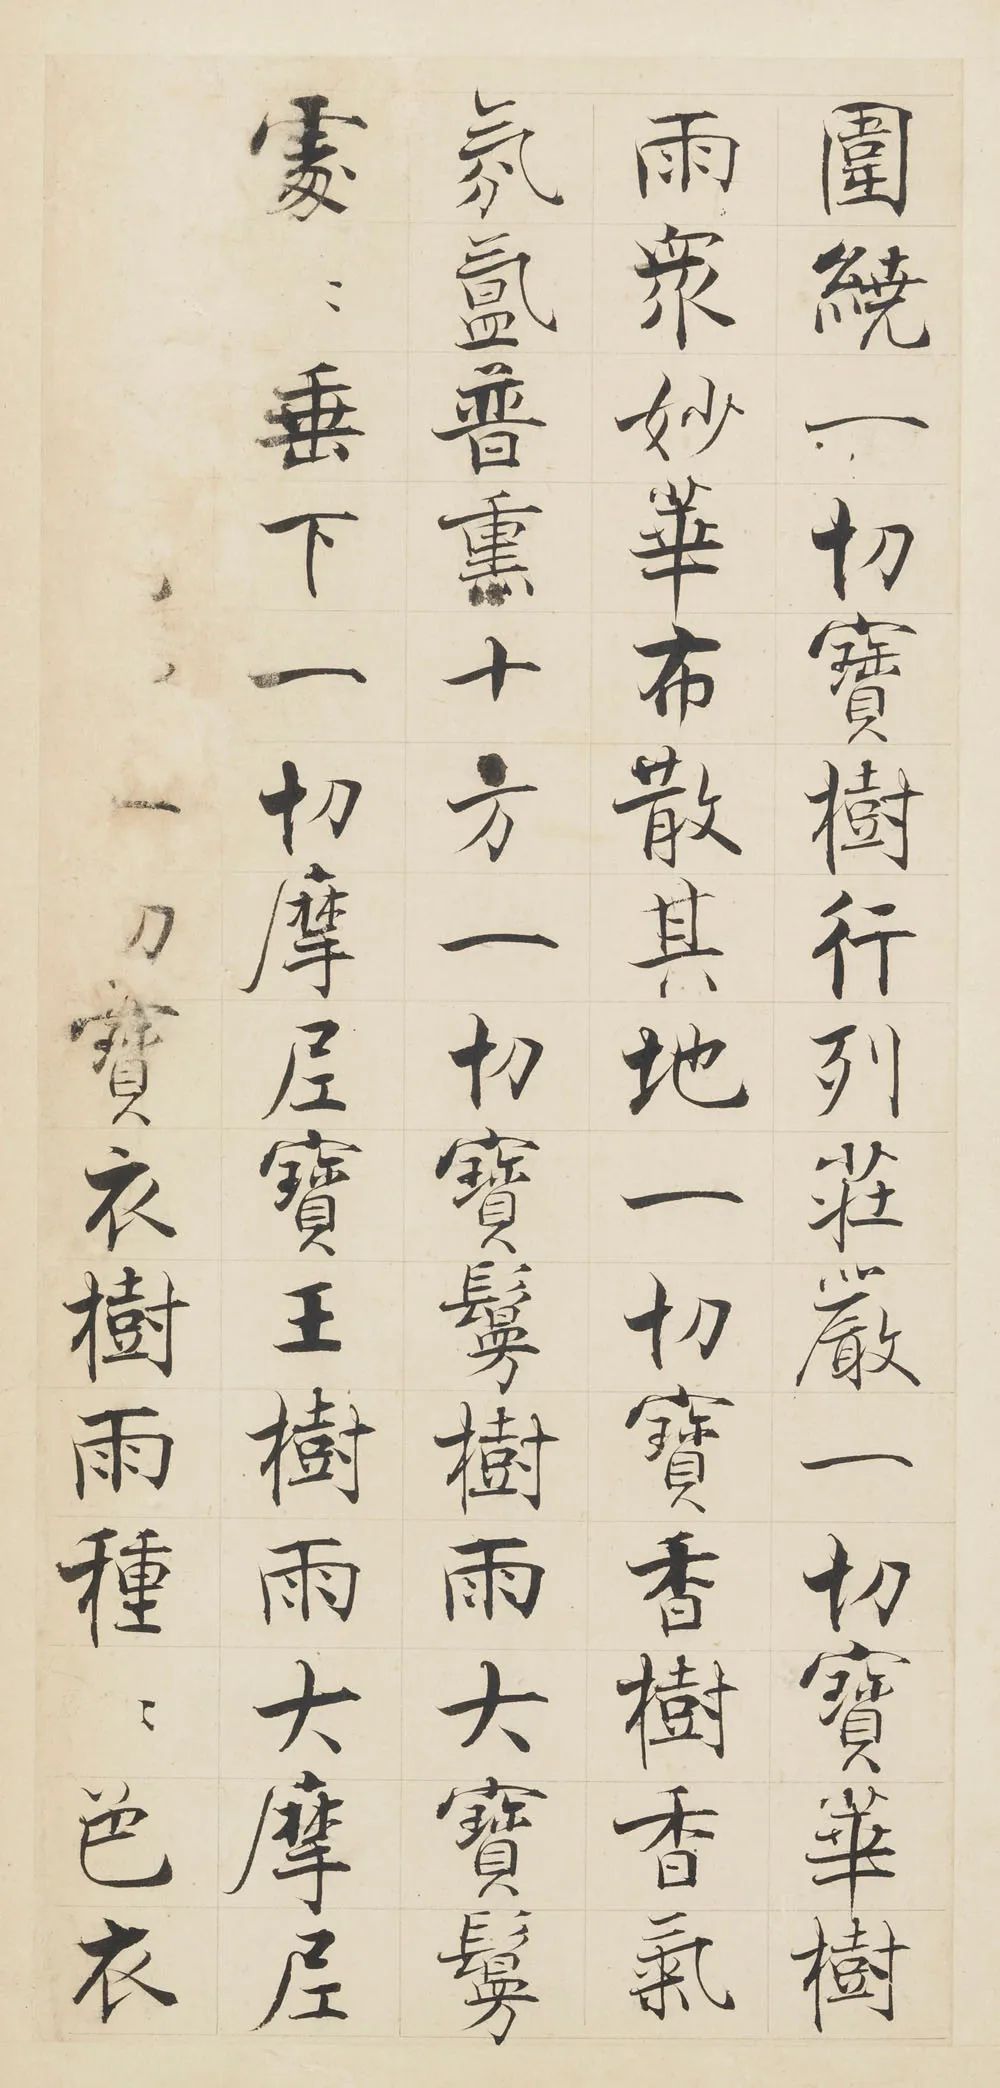 圍繞一切寶樹行列莊嚴一切寶華樹
雨衆妙華布散其地一切寶香樹香氣
氛氲普熏十方一切寶鬘樹雨大寶鬘
處〻垂下一切摩尼寶王樹雨大摩尼
一切寶衣樹雨種〻色衣